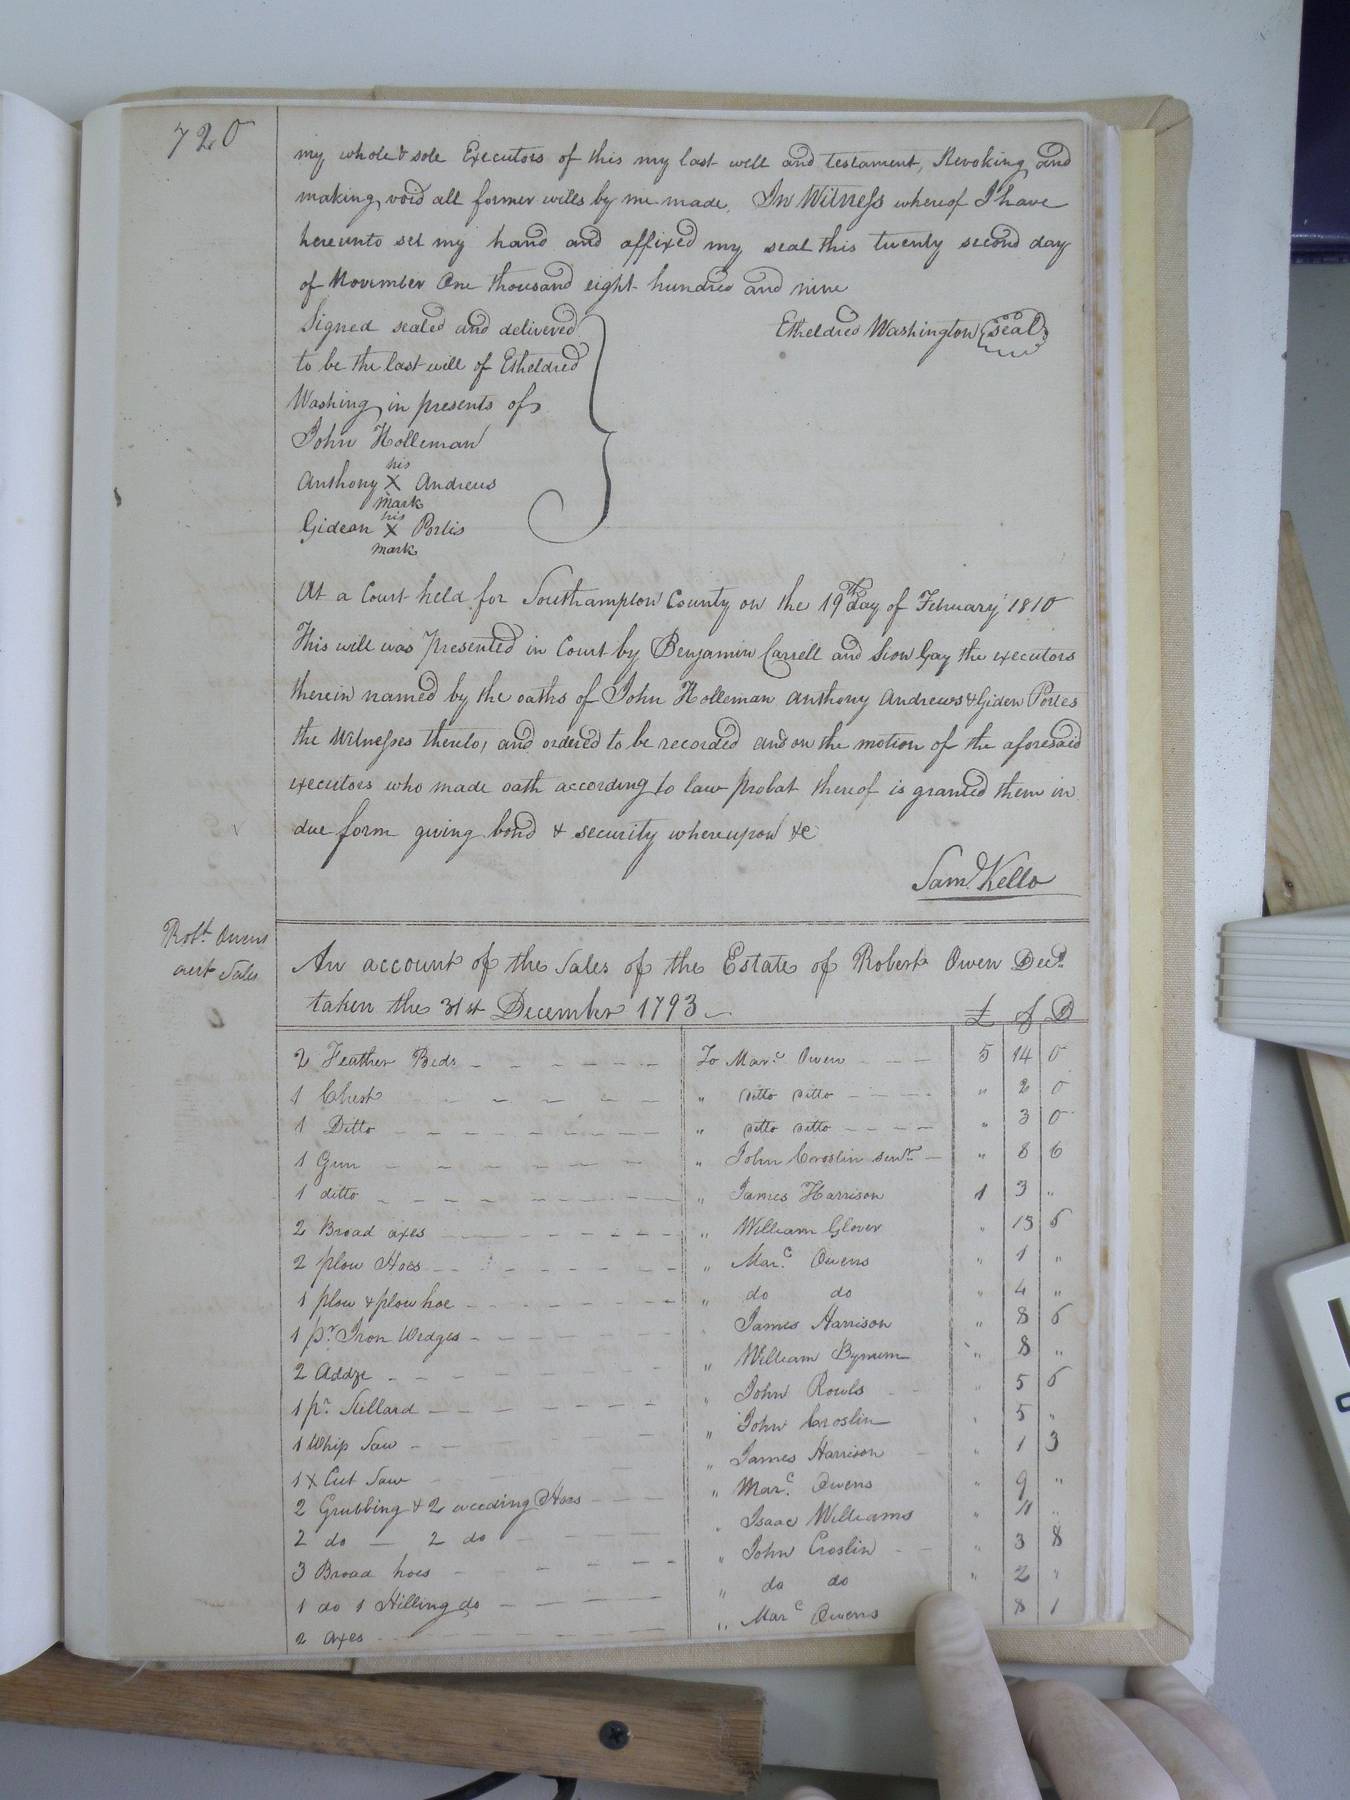 720
my whole & sole Executors of this my last will and testament, Revoking and
making void all former wills by me made. In Witness whereof I have
hereunto set my hand and affixed my seal this twenty second day
of November One thousand eight hundred and nine
Signed sealed and delivered
to be the last will of Etheldred
Washing in presents of
Etheldred Washington seal
John Holleman
his
Anthony X Andrews
mark
his
Gideon X Portis
mark
At a Court held for Southampton County on the 19th day of February 1810
This will was presented in Court by Benjamin Carrell and Sion Gay the executors
therein named by the oaths of John Holleman Anthony Andrews & Giden Portes
the Witnesses thereto, and ordered to be recorded and on the motion of the aforesaid
executors who made oath according to law probat thereof is granted them in
due form giving bond & security whereupon &c
Saml. Kello
Robt. Owens
acct Sales
An account of the Sales of the Estate of Robert Owen Decd.
taken the 31st December 1793
£ S D
2 Feather Beds To Marc. Owen 5 14 0
1 Chest " ditto ditto " 2 0
1 Ditto " ditto ditto " 3 0
1 Gun " John Croslin senr. " 8 6
1 ditto " James Harrison 1 3 "
2 Broad axes " William Glover " 13 6
2 plow Hoes " Marc. Owens " 1 "
1 plow & plow hoe " do do " 4 "
1 pr. Iron Wedges " James Harrison " 8 6
2 Addze " William Bynum " 8 "
1 pr. Stillard " John Rowls " 5 6
1 Whip Saw " John Croslin " 5 "
1 X Cut Saw " James Harrison " 1 3
2 Grubbing & 2 weeding Hoes " Marc. Owens " 9 "
2 do 2 do " Isaac Williams " 11 "
3 Broad hoes " John Croslin " 3 8
1 do 1 Hilling do " do do " 2 "
2 axes " Marc Owens 8 1